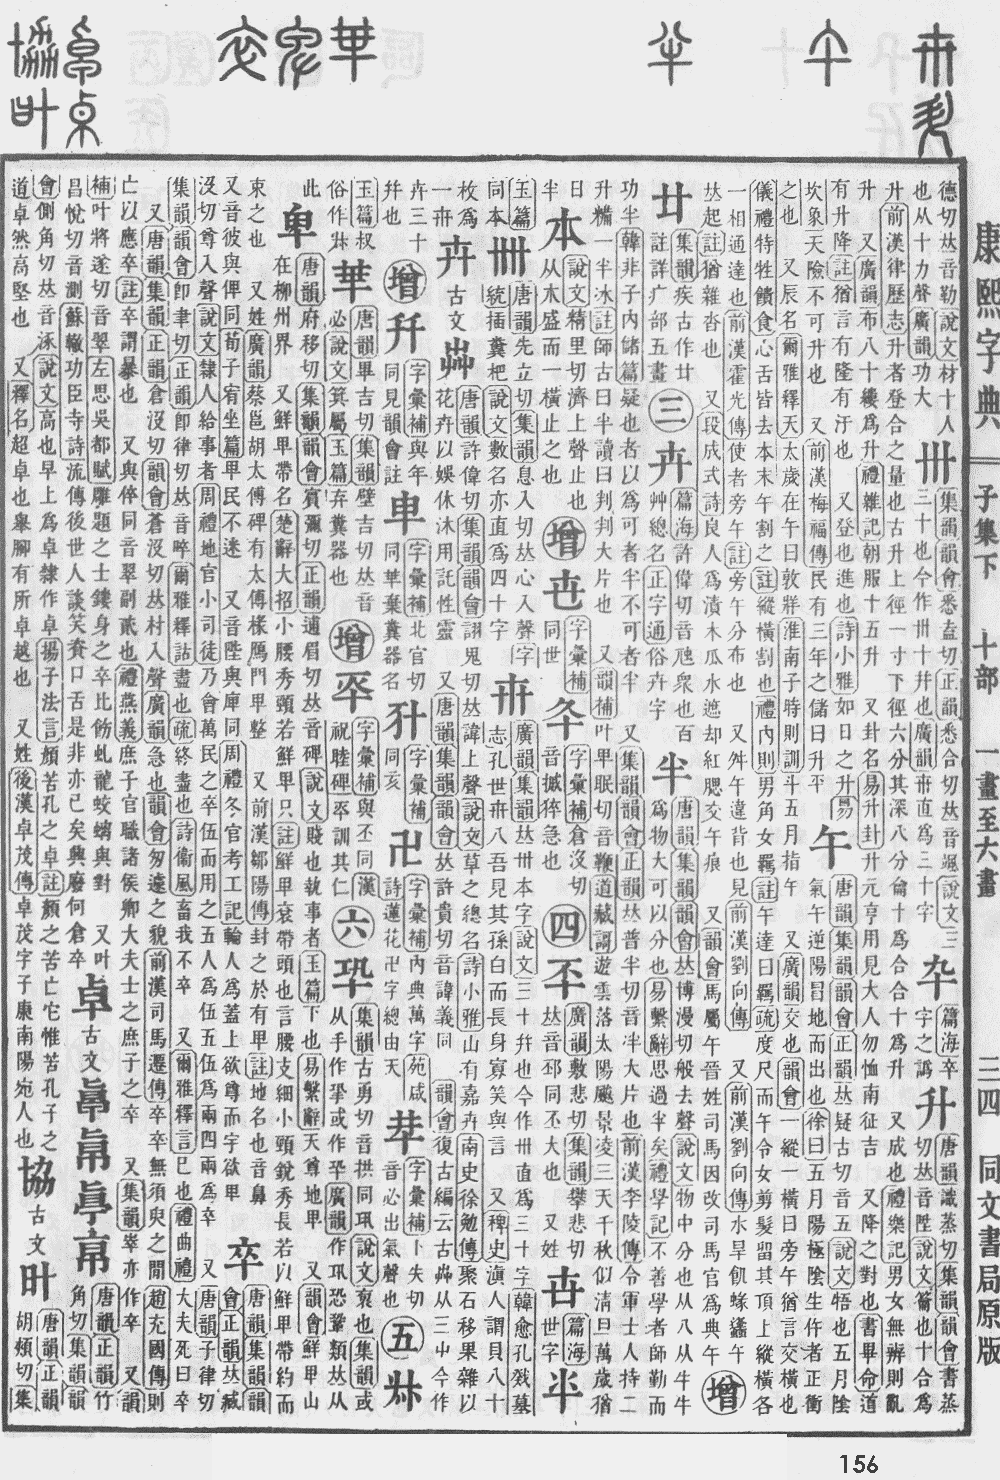 康熙字典 子集下 十部 一畫至六畫 三四 同文書局原版
德切𠀤音勒說文材十人
也从十力聲廣韻功大
卅
集韻韻會悉盍切正韻悉合切𠀤音趿說文三
三十也今作卅十幷也廣韻卅直爲三十字
卆
篇海卒
字之譌
升
唐韻識蒸切集韻韻會書蒸
切𠀤音陞說文籥也十合爲
升前漢律歷志升者登合之量也古升上徑一寸下徑六分其深八分龠十爲合合十爲升 又成也禮樂記男女無辨則亂
升 又廣韻布八十縷爲升禮雜記朝服十五升 又卦名易升卦升元亨用見大人勿恤南征吉 又降之對也書畢命道
有升降註猶言有隆有汙也 又登也進也詩小雅如日之升易
坎象天險不可升也 又前漢梅福傳民有三年之儲曰升平
午
唐韻集韻韻會正韻𠀤疑古切音五說文啎也五月陰
氣午逆陽冒地而出也徐曰五月陽極陰生仵者正衝
之也 又辰名爾雅釋天太歲在午曰敦牂淮南子時則訓斗五月指午 又廣韻交也韻會一縱一橫曰旁午猶言交橫也
儀禮特牲饋食心舌皆去本末午割之註縱橫割也禮內則男角女羈註午達曰羈疏度尺而午令女剪髮留其頂上縱橫各
一相通達也前漢霍光傳使者旁午註旁午分布也 又舛午違背也見前漢劉向傳 又前漢劉向傳水旱飢蝝蠭午
𠀤起註猶雜沓也 又段成式詩良人爲漬木瓜水遮却紅腮交午痕 又韻會馬屬午晉姓司馬因改司馬官爲典午
增
廿
集韻疾古作廿
註詳疒部五畫
三
卉
篇海許偉切音虺衆也百
艸總名正字通俗卉字
半
唐韻集韻韻會𠀤博漫切般去聲說文物中分也从八从牛牛
爲物大可以分也易繫辭思過半矣禮學記不善學者師勤而
功半韓非子內儲篇疑也者以爲可者半不可者半 又集韻韻會正韻𠀤普半切音泮大片也前漢李陵傳令軍士人持二
升糒一半冰註師古曰半讀曰判判大片也 又韻補叶畢眠切音鞭道藏謌遊雲落太陽飇景凌三天千秋似淸旦萬歲猶
日
半
說文精里切濟上聲止也
从木盛而一橫止之也
增
字彙補
同世
字彙補倉沒切
音撼猝急也
四
丕
廣韻敷悲切集韻攀悲切
𠀤音邳同丕大也 又姓
篇海
世字
玉篇
同本
卌
唐韻先立切集韻息入切𠀤心入聲字
統插糞杷說文數名亦直爲四十字
卅
廣韻集韻𠀤卅本字說文三十幷也今作卅直爲三十字韓愈孔戣墓
志孔世卅八吾見其孫白而長身寡笑與言 又稗史滇人謂貝八十
枚爲
一卌
卉
古文
芔
唐韻許偉切集韻韻會詡鬼切𠀤諱上聲說文草之總名詩小雅山有嘉卉南史徐勉傳聚石移果雜以
花卉以娛休沐用託性靈 又唐韻集韻韻會𠀤許貴切音諱義同 韻會復古編云古芔从三屮今作
卉三十
幷也
增
字彙補與年
同見韻會註
字彙補北官切
同華棄糞器名
字彙補
同亥
卍
字彙補內典萬字苑咸
詩蓮花卍字總由天
字彙補卜失切
音必出氣聲也
五
玉篇叔
俗作
華
唐韻畢吉切集韻壁吉切𠀤音
必說文箕屬玉篇弃糞器也
增
字彙補與丕同漢
祝睦碑丕訓其仁
六
巩
集韻古勇切音拱同巩說文㧬也集韻或
从手作㧬或作㧬廣韻作巩恐鞏類𠀤从
此
卑
唐韻府移切集韻韻會賓彌切正韻逋眉切𠀤音碑說文賤也執事者玉篇下也易繫辭天尊地卑 又韻會鮮卑山
在柳州界 又鮮卑帶名楚辭大招小腰秀頸若鮮卑只註鮮卑袞帶頭也言腰支細小頸銳秀長若以鮮卑帶約而
束之也 又姓廣韻蔡邕胡太傅碑有太傅椽鴈門卑整 又前漢鄒陽傳封之於有卑註地名也音鼻
又音彼與俾同荀子宥坐篇卑民不迷 又音陛與庳同周禮冬官考工記輪人爲蓋上欲尊而宇欲卑
卒
唐韻集韻韻
會正韻𠀤臧
沒切尊入聲說文隸人給事者周禮地官小司徒乃會萬民之卒伍而用之五人爲伍五伍爲兩四兩爲卒 又唐韻子律切
集韻韻會卽聿切正韻卽律切𠀤音啐爾雅釋詁盡也疏終盡也詩衞風畜我不卒 又爾雅釋言已也禮曲禮大夫死曰卒
又唐韻集韻正韻倉沒切韻會蒼沒切𠀤村入聲廣韻急也韻會匆遽之貌前漢司馬遷傳卒卒無須臾之閒趙充國傳則
亡以應卒註卒謂暴也 又與倅同音翠副貳也禮燕義庶子官職諸侯卿大夫士之庶子之卒 又集韻崒亦作卒 又韻
補叶將遂切音翠左思吳都賦雕題之士鏤身之卒比飾虬龍蛟螭與對 又叶
昌悅切音測蘇轍功臣寺詩流傳後世人談笑資口舌是非亦已矣興廢何倉卒
卓
古文
唐韻正韻竹
角切集韻韻
會側角切𠀤音涿說文高也早上爲卓隸作卓揚子法言顏苦孔之卓註顏之苦亡它惟苦孔子之
道卓然高堅也 又釋名超卓也舉腳有所卓越也 又姓後漢卓茂傳卓茂字子康南陽宛人也
協
古文
叶
唐韻正韻
胡頰切集
156